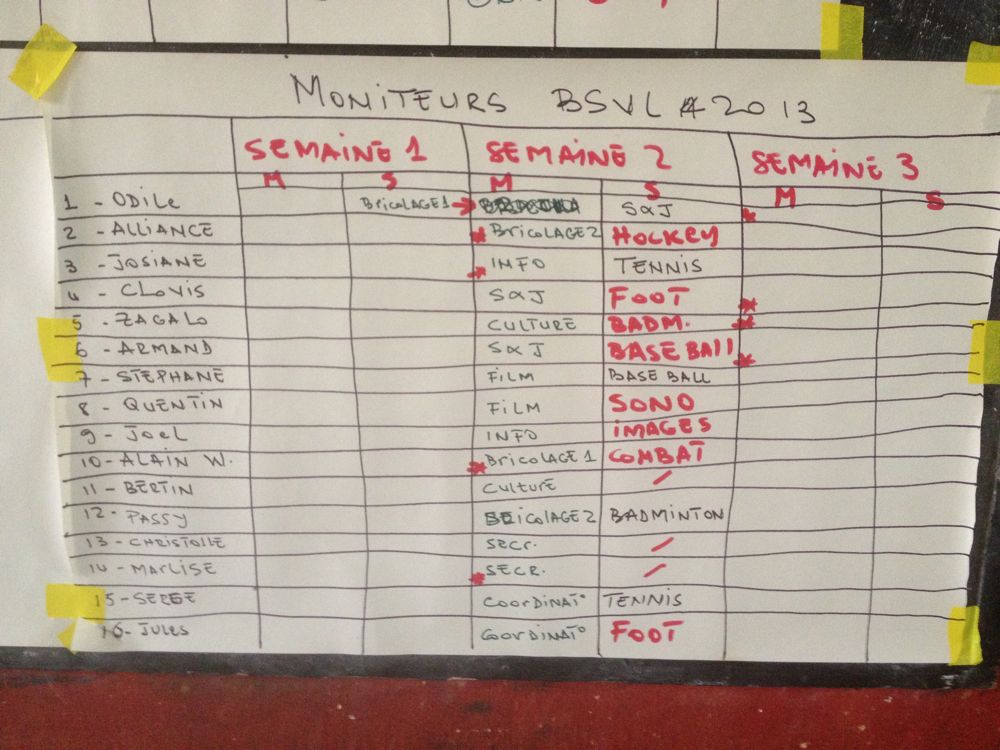 MONITEURS BSVL 2013
SEMAINE 1 SEMAINE 2 SEMAINE 3
M S M S M S
1 - ODILE BricoLAGE 1 → S&J
2 - ALLIANCE BricoLAGE 2 HOCKEY
3 - JOSIANE INFO TENNIS
4 - CLOVIS S&J FOOT
5 - ZAGALO CULTURE BADM.
6 - ARMAND S&J BASE BAll
7 - STEPHANE FILM BASE BALL
8 - QUENTIN FILM SONO
9 - JOEL INFO IMAGES
10 - ALAIN W. BricoLAGE 1 COMBAT
11 - BERTIN Culture /
12 - PASSY BricoLAGE 2 BADMINTON
13 - CHRISTOLLE SECR. /
14 - MARLISE SECR. /
15 - SERGE COORDINAT° TENNIS
16 - JULES COORDINAT° FOOT